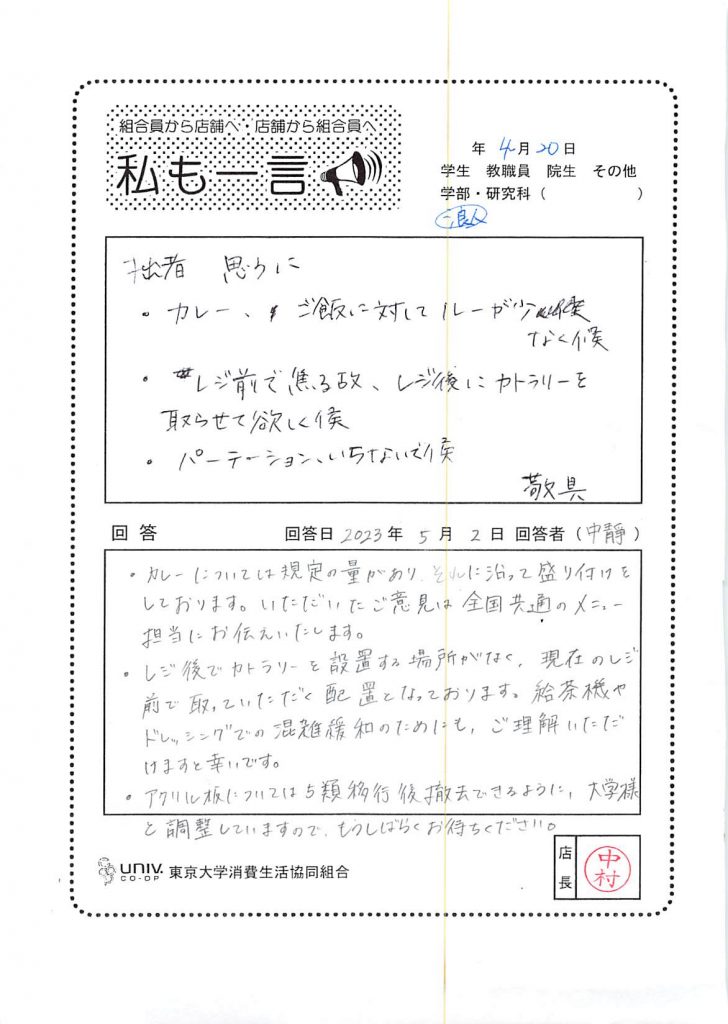 組合員から店舗へ・店舗から組合員へ
私も一言
年 4月 20日
学生 教職員 院生 その他
学部・研究科( )
浪人
拙者 思うに
・カレー、ご飯に対してルーが少
なく候
・レジ前で焦る故、レジ後にカトラリーを
取らせて欲しく候
・パーテーション、いらないで候
敬具
回答 回答日 2023年 5月 2日 回答者(中静)
・カレーについては規定の量があり、それに沿って盛り付けを
しております。いただいたご意見は全国共通のメニュー
担当にお伝えいたします。
・レジ後でカトラリーを設置する場所がなく、現在のレジ
前で取っていただく配置となっております。給茶機や
ドレッシングでの混雑緩和のためにも、ご理解いただ
けますと幸いです。
・アクリル板については5類移行後撤去できるように、大学様
と調整していますので、もうしばらくお待ちください。
UNIV. CO-OP 東京大学消費生活協同組合
店長 中村